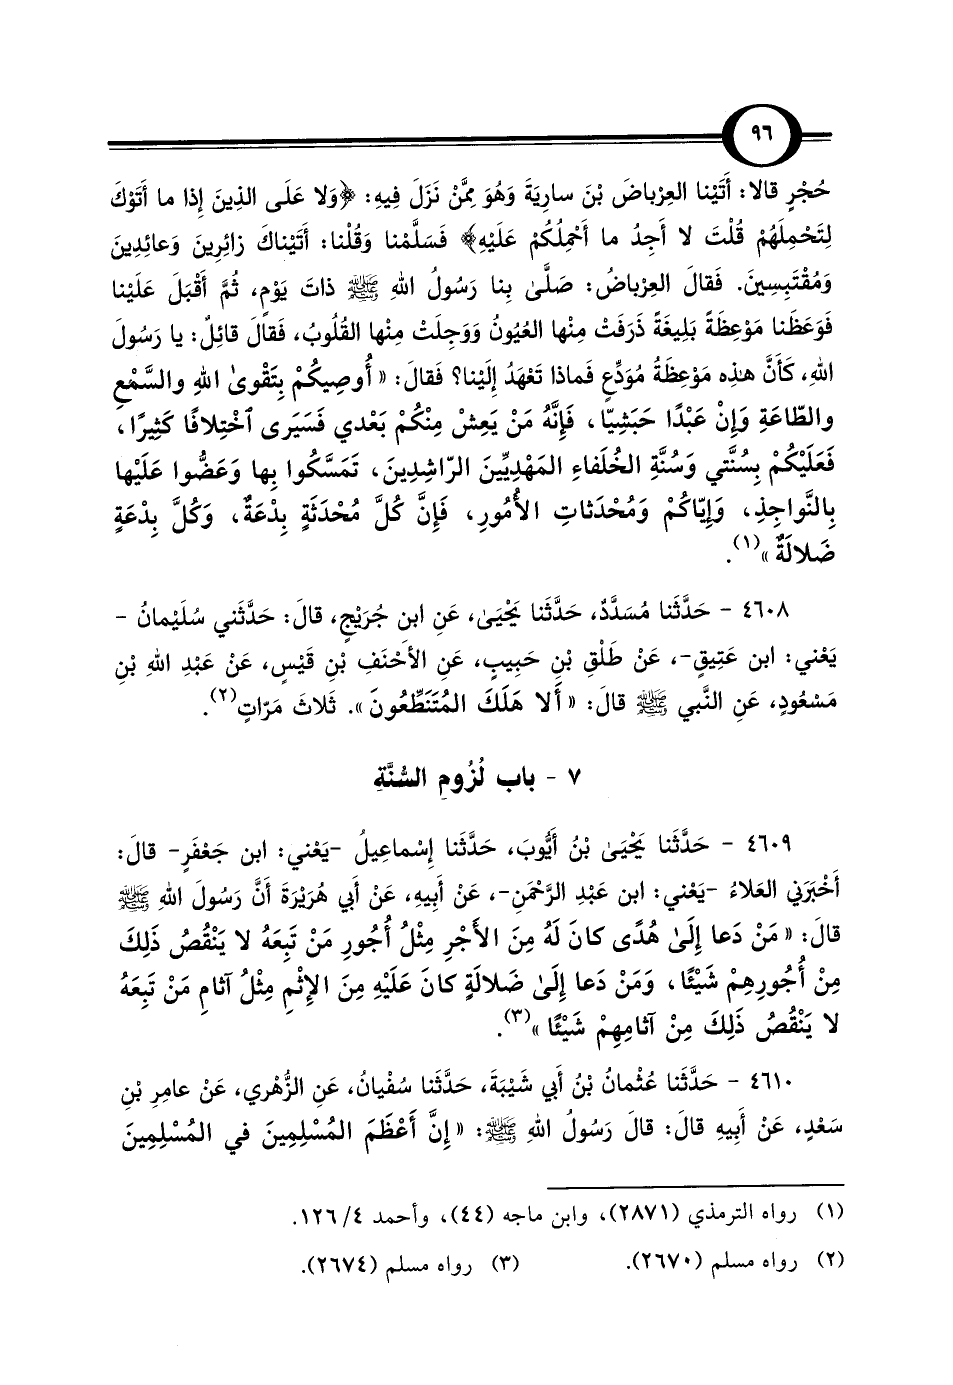 ٩٦
حُجْرٍ قالا: أَتَيْنا العِرْباضَ بْنَ سارِيَةَ وَهُوَ مِمَّنْ نَزَلَ فِيهِ: ﴿وَلا عَلَى الذِينَ إِذا ما أَتَوْكَ
لِتَحْمِلَهُمْ قُلْتَ لا أَجِدُ ما أَحْمِلُكُمْ عَلَيْهِ﴾ فَسَلَّمْنا وَقُلْنا: أَتَيْناكَ زائِرِينَ وَعائِدِينَ
وَمُقْتَبِسِينَ. فَقالَ العِرْباضُ: صَلَّىٰ بِنا رَسُولُ اللهِ ﷺ ذاتَ يَوْمٍ، ثُمَّ أَقْبَلَ عَلَيْنا
فَوَعَظَنا مَوْعِظَةً بَلِيغَةً ذَرَفَتْ مِنْها العُيُونُ وَوَجِلَتْ مِنْها القُلُوبُ، فَقالَ قائِلٌ: يا رَسُولَ
اللهِ، كَأَنَّ هٰذِه مَوْعِظَةُ مُوَدِّعٍ فَماذا تَعْهَدُ إِلَيْنا؟ فَقالَ: «أُوصِيكُمْ بِتَقْوىٰ اللهِ والسَّمْعِ
والطّاعَةِ وَإِنْ عَبْدًا حَبَشِيّا، فَإِنَّهُ مَنْ يَعِشْ مِنْكُمْ بَعْدي فَسَيَرى ٱخْتِلافًا كَثِيرًا،
فَعَلَيْكُمْ بِسُنَّتي وَسُنَّةِ الخُلَفاءِ المَهْدِيِّينَ الرّاشِدِينَ، تَمَسَّكُوا بِها وَعَضُّوا عَلَيْها
بِالنَّواجِذِ، وَإِيّاكُمْ وَمُحْدَثاتِ الأُمُورِ، فَإِنَّ كُلَّ مُحْدَثَةٍ بِدْعَةٌ، وَكُلَّ بِدْعَةٍ
ضَلالَةٌ»(١).
٤٦٠٨ - حَدَّثَنا مُسَدَّدٌ، حَدَّثَنا يَحْيَىٰ، عَنِ ابن جُرَيْجٍ، قالَ: حَدَّثَني سُلَيْمانُ -
يَعْني: ابن عَتِيقٍ-، عَنْ طَلْقِ بْنِ حَبِيبٍ، عَنِ الأَحْنَفِ بْنِ قَيْسٍ، عَنْ عَبْدِ اللهِ بْنِ
مَسْعُودٍ، عَنِ النَّبي ﷺ قالَ: «أَلا هَلَكَ المُتَنَطِّعُونَ». ثَلاثَ مَرّاتٍ(٢).
٧ - باب لُزُومِ السُّنَّةِ
٤٦٠٩ - حَدَّثَنا يَحْيَىٰ بْنُ أَيُّوبَ، حَدَّثَنا إِسْماعِيلُ -يَعْني: ابن جَعْفَرٍ- قالَ:
أَخْبَرَنِي العَلاءُ -يَعْني: ابن عَبْدِ الرَّحْمَنِ-، عَنْ أَبِيهِ، عَنْ أَبِي هُرَيْرَةَ أَنَّ رَسُولَ اللهِ ﷺ
قالَ: «مَنْ دَعا إِلَىٰ هُدًى كانَ لَهُ مِنَ الأَجْرِ مِثْلُ أُجُورِ مَنْ تَبِعَهُ لا يَنْقُصُ ذَلِكَ
مِنْ أُجُورِهِمْ شَيْئًا، وَمَنْ دَعا إِلَىٰ ضَلالَةٍ كانَ عَلَيْهِ مِنَ الإِثْمِ مِثْلُ آثامِ مَنْ تَبِعَهُ
لا يَنْقُصُ ذَلِكَ مِنْ آثامِهِمْ شَيْئًا»(٣).
٤٦١٠ - حَدَّثَنا عُثْمانُ بْنُ أَبي شَيْبَةَ، حَدَّثَنا سُفْيانُ، عَنِ الزُّهْري، عَنْ عامِرِ بْنِ
سَعْدٍ، عَنْ أَبِيهِ قالَ: قالَ رَسُولُ اللهِ ﷺ: «إِنَّ أَعْظَمَ المُسْلِمِينَ في المُسْلِمِينَ
(١) رواه الترمذي (٢٨٧١)، وابن ماجه (٤٤)، وأحمد ٤/ ١٢٦.
(٢) رواه مسلم (٢٦٧٠). (٣) رواه مسلم (٢٦٧٤).